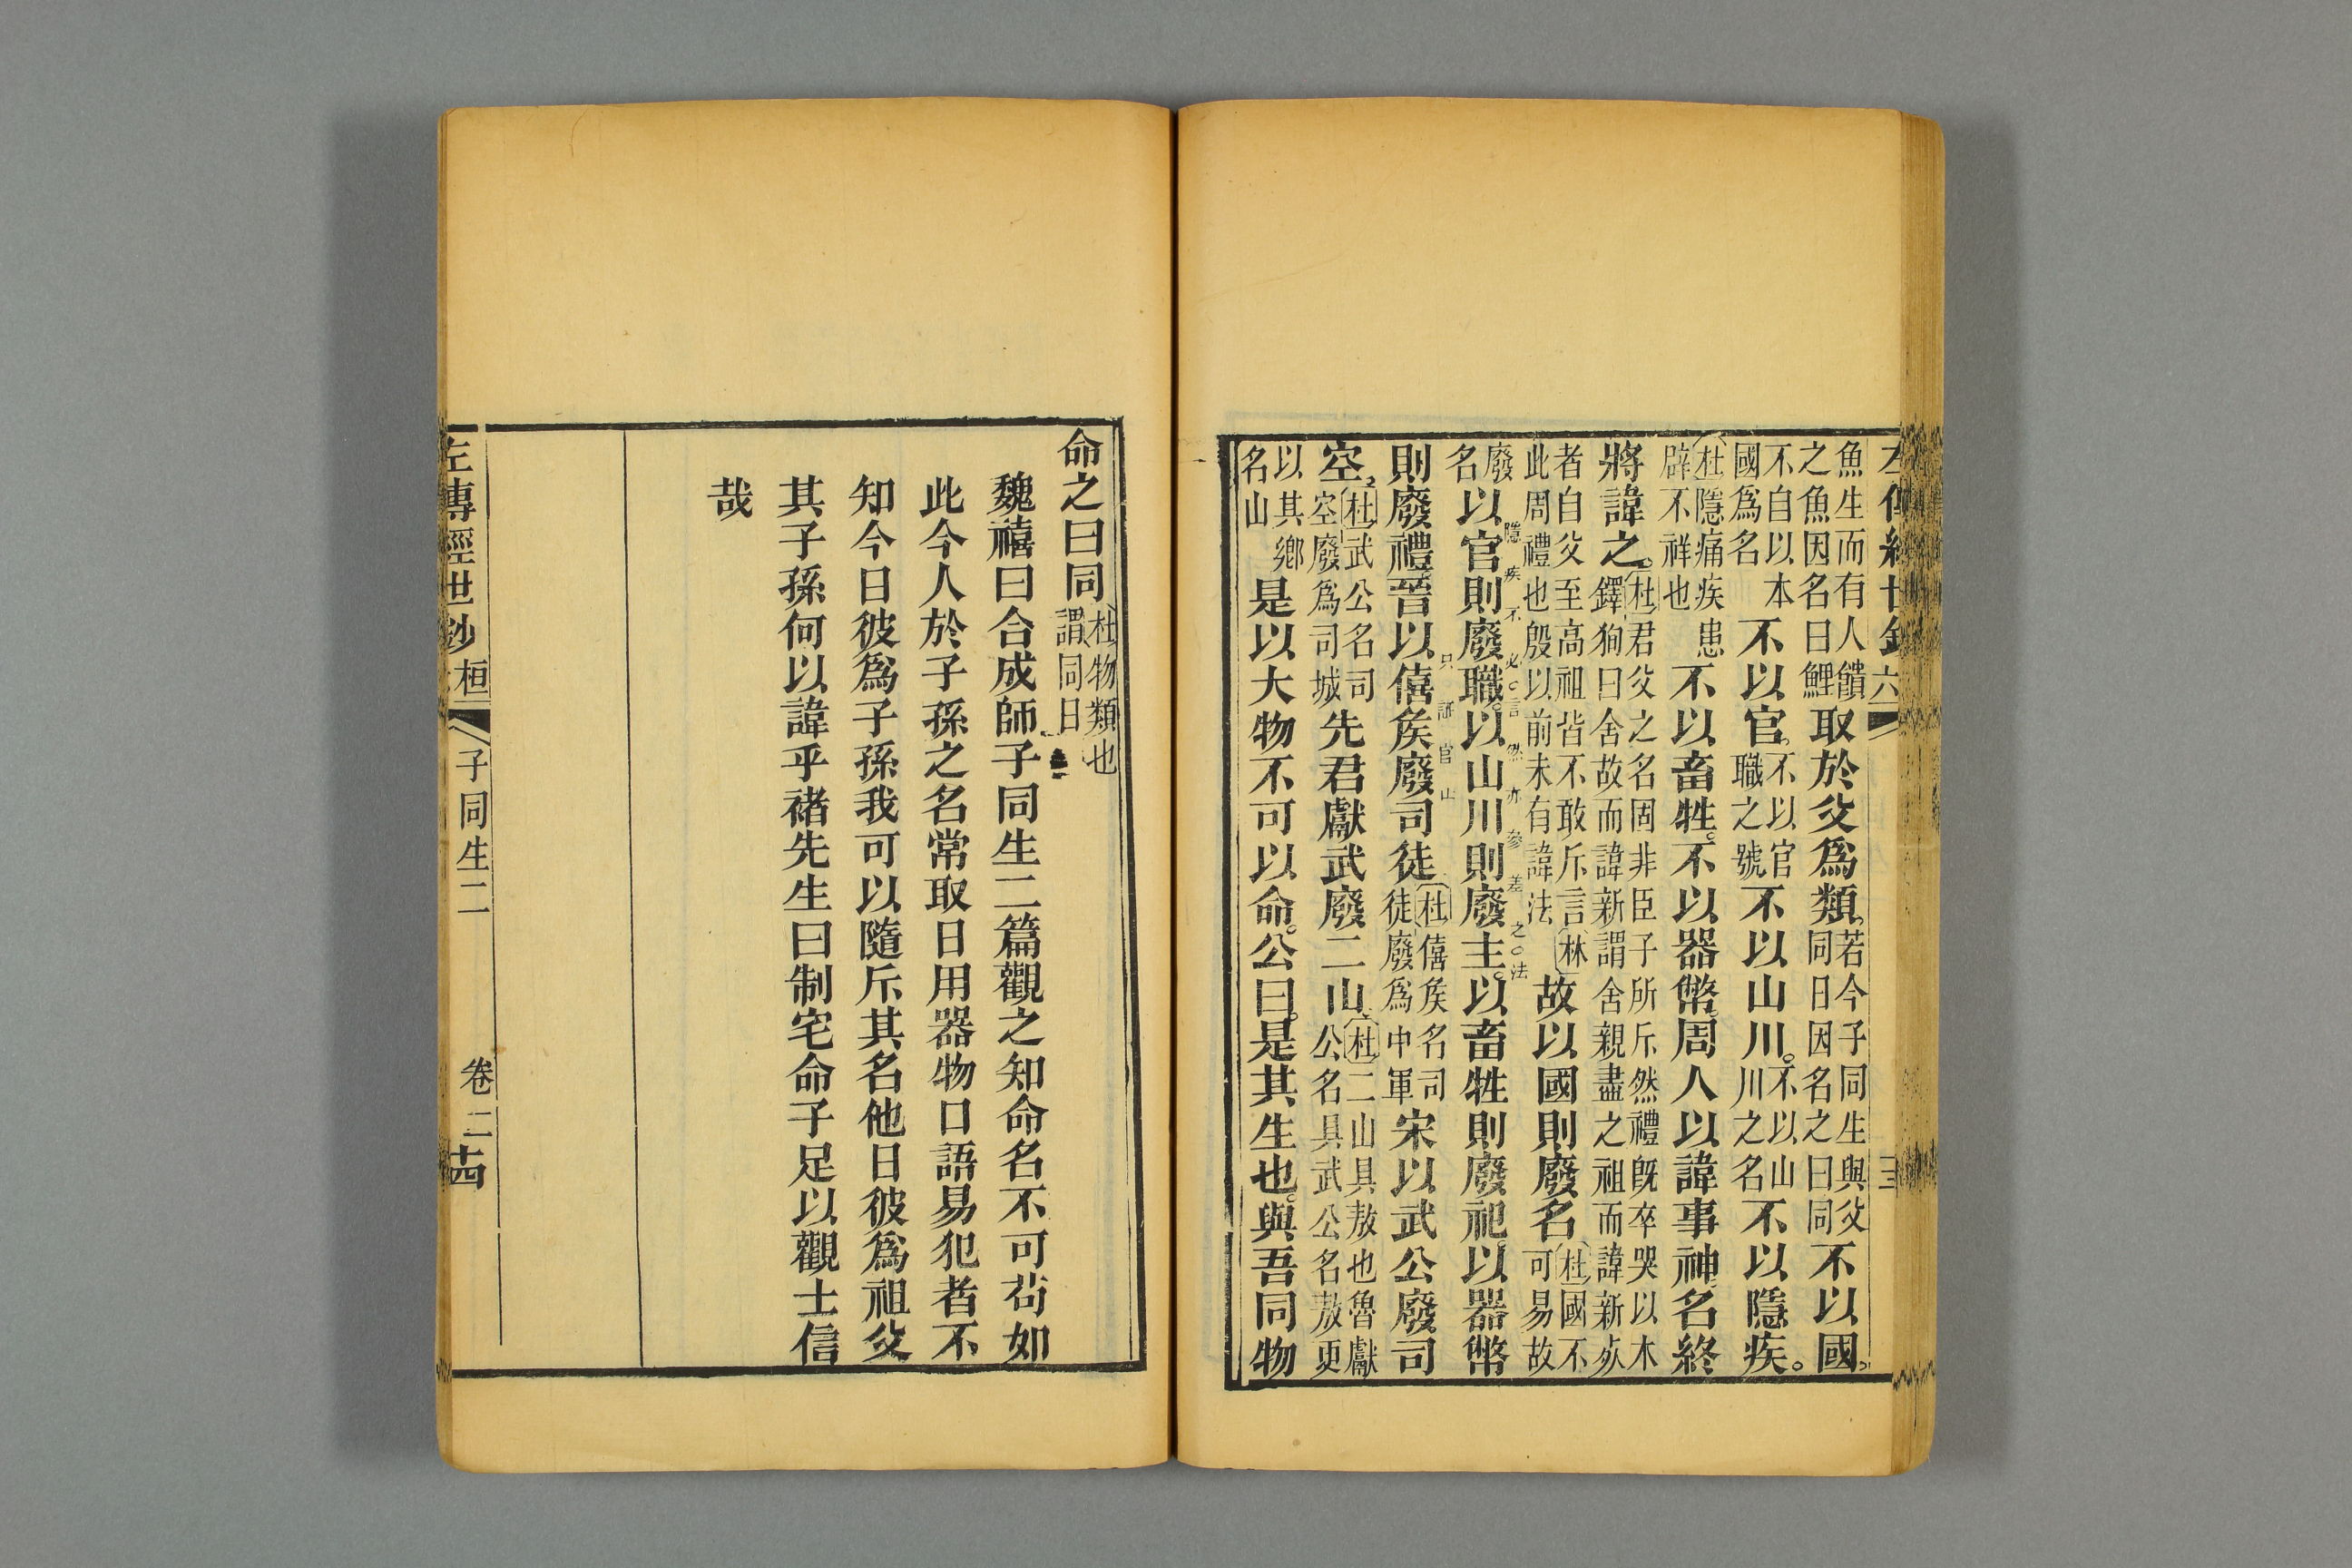 六
魚生而有人饋之魚因名曰鯉取於父爲類。若今子同生與父同日因名之曰同不以國。
不自以本國爲名不以官。不以官職之號不以山川。不以山川之名不以隱疾。
杜隱痛疾患辟不祥也不以畜牲。不以器幣。周人以諱事神。名終
將諱之。杜君父之名固非臣子所斥然禮旣卒哭以木鐸狥曰舍故而諱新謂舍親盡之祖而諱新死
者自父至高祖皆不敢斥言林此周禮也殷以前未有諱法故以國則廢名杜國不可易故
隱疾不必言然亦參差之法
廢名以官則廢職。以山川則廢主。以畜牲則廢祀。以器幣
只証官山
則廢禮晉以僖矦廢司徒杜僖矦名司徒廢爲中軍宋以武公廢司
空。杜武公名司空廢爲司城先君獻武廢二山杜二山具敖也魯獻公名具武公名敖更
以其鄉名山是以大物不可以命。公曰。是其生也。與吾同物
命之曰同杜物類也謂同日
魏禧曰合成師子同生二篇觀之知命名不可苟如
此今人於子孫之名常取日用器物口語易犯者不
知今日彼爲子孫我可以隨斥其名他日彼爲祖父
其子孫何以諱乎褚先生曰制宅命子足以觀士信
哉
左傳經世鈔 桓 子同生二 卷二 十四